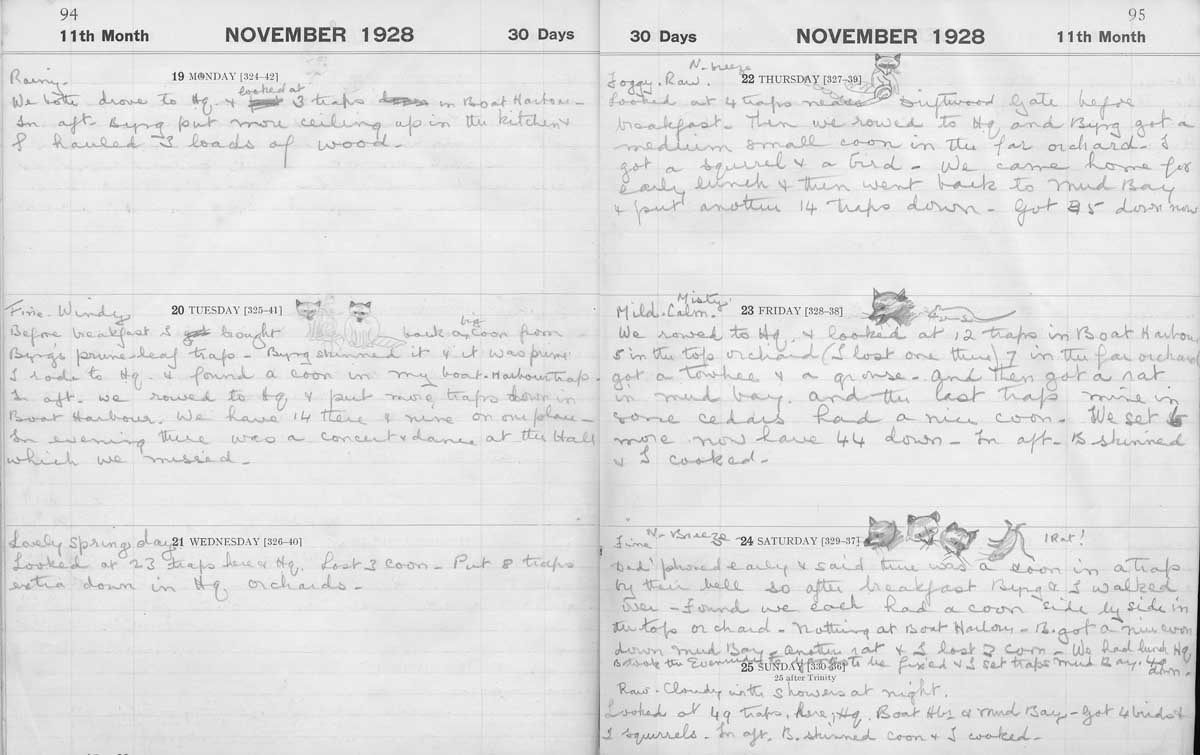 94
11th Month
NOVEMBER 1928
30 Days
Rainy.
19 MONDAY [324-42]
looked at
We both drove to Hq. & 3 traps in Boat Harbour -
In aft. Byng put more ceiling up in the kitchen &
I hauled 3 loads of wood.
Fine. Windy
20 TUESDAY [325-41]
Before breakfast I bought back a big coon from
Byng's prune-leaf trap - Byng skinned it & it was prime
I rode to Hq. & found a coon in my boat-Harbour trap.
In aft. we rowed to Hq & put more traps down in
Boat Harbour. We have 14 there & nine on our place -
In evening there was a concert & dance at the Hall
which we missed -
Lovely Spring day
21 WEDNESDAY [326-40]
Looked at 23 traps here & Hq. Lost 3 coon - Put 8 traps
extra down in Hq orchards -
95
30 Days
NOVEMBER 1928
11th Month
Foggy. Raw. N-breeze
22 THURSDAY [327-39]
Looked at 4 traps near Driftwood Gate before
breakfast - Then we rowed to Hq and Byng got a
medium small coon in the far orchard - I
got a squirrel & a bird - We came home for
early lunch & then went back to Mud Bay
& put another 14 traps down - Got 35 down now
Mild. Calm. Misty
23 FRIDAY [328-38]
We rowed to Hq. & looked at 12 traps in Boat Harbour
5 in the top orchard (I lost one there) 7 in the far orchard
got a Towhee & a grouse - and then got a rat
in mud bay. and the last traps mine in
some cedars had a nice coon - We set 6
more now have 44 down - In aft - B. skinned
& I cooked -
Fine N-Breeze
24 SATURDAY [329-37]
1 Rat!
Dad 'phoned early & said there was a coon in a trap
by their well so after breakfast Byng & I walked
over - Found we each had a coon side by side in
the top orchard - Nothing at Boat Harbour - B. got a nice coon
down Mud Bay - another rat & I lost 2 coon - We had lunch Hq
B. took the to be fixed & I set traps Mud Bay. 49
down -
25 SUNDAY [330-36]
25 after Trinity
Raw. Cloudy with showers at night.
Looked at 49 traps, here, Hq, Boat Hbr & Mud Bay - Got 4 birds &
2 squirrels. In aft. B. skinned coon & I cooked -